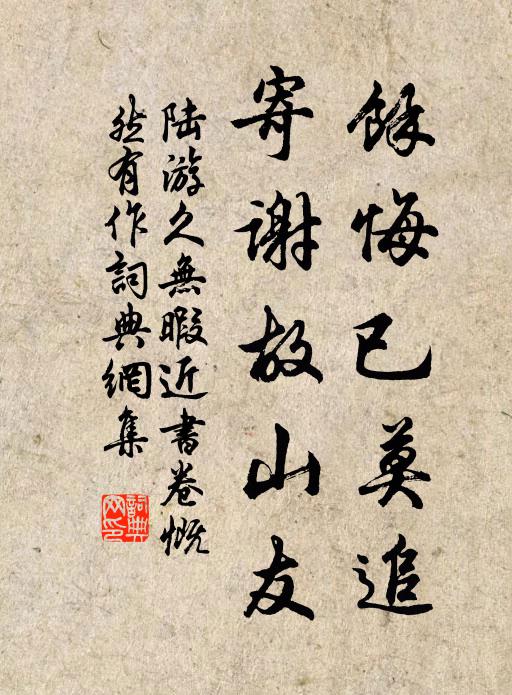 餘悔已莫追
寄謝故山友
陸游久無暇近書卷慨
然有作詞典網集
詞典
网印